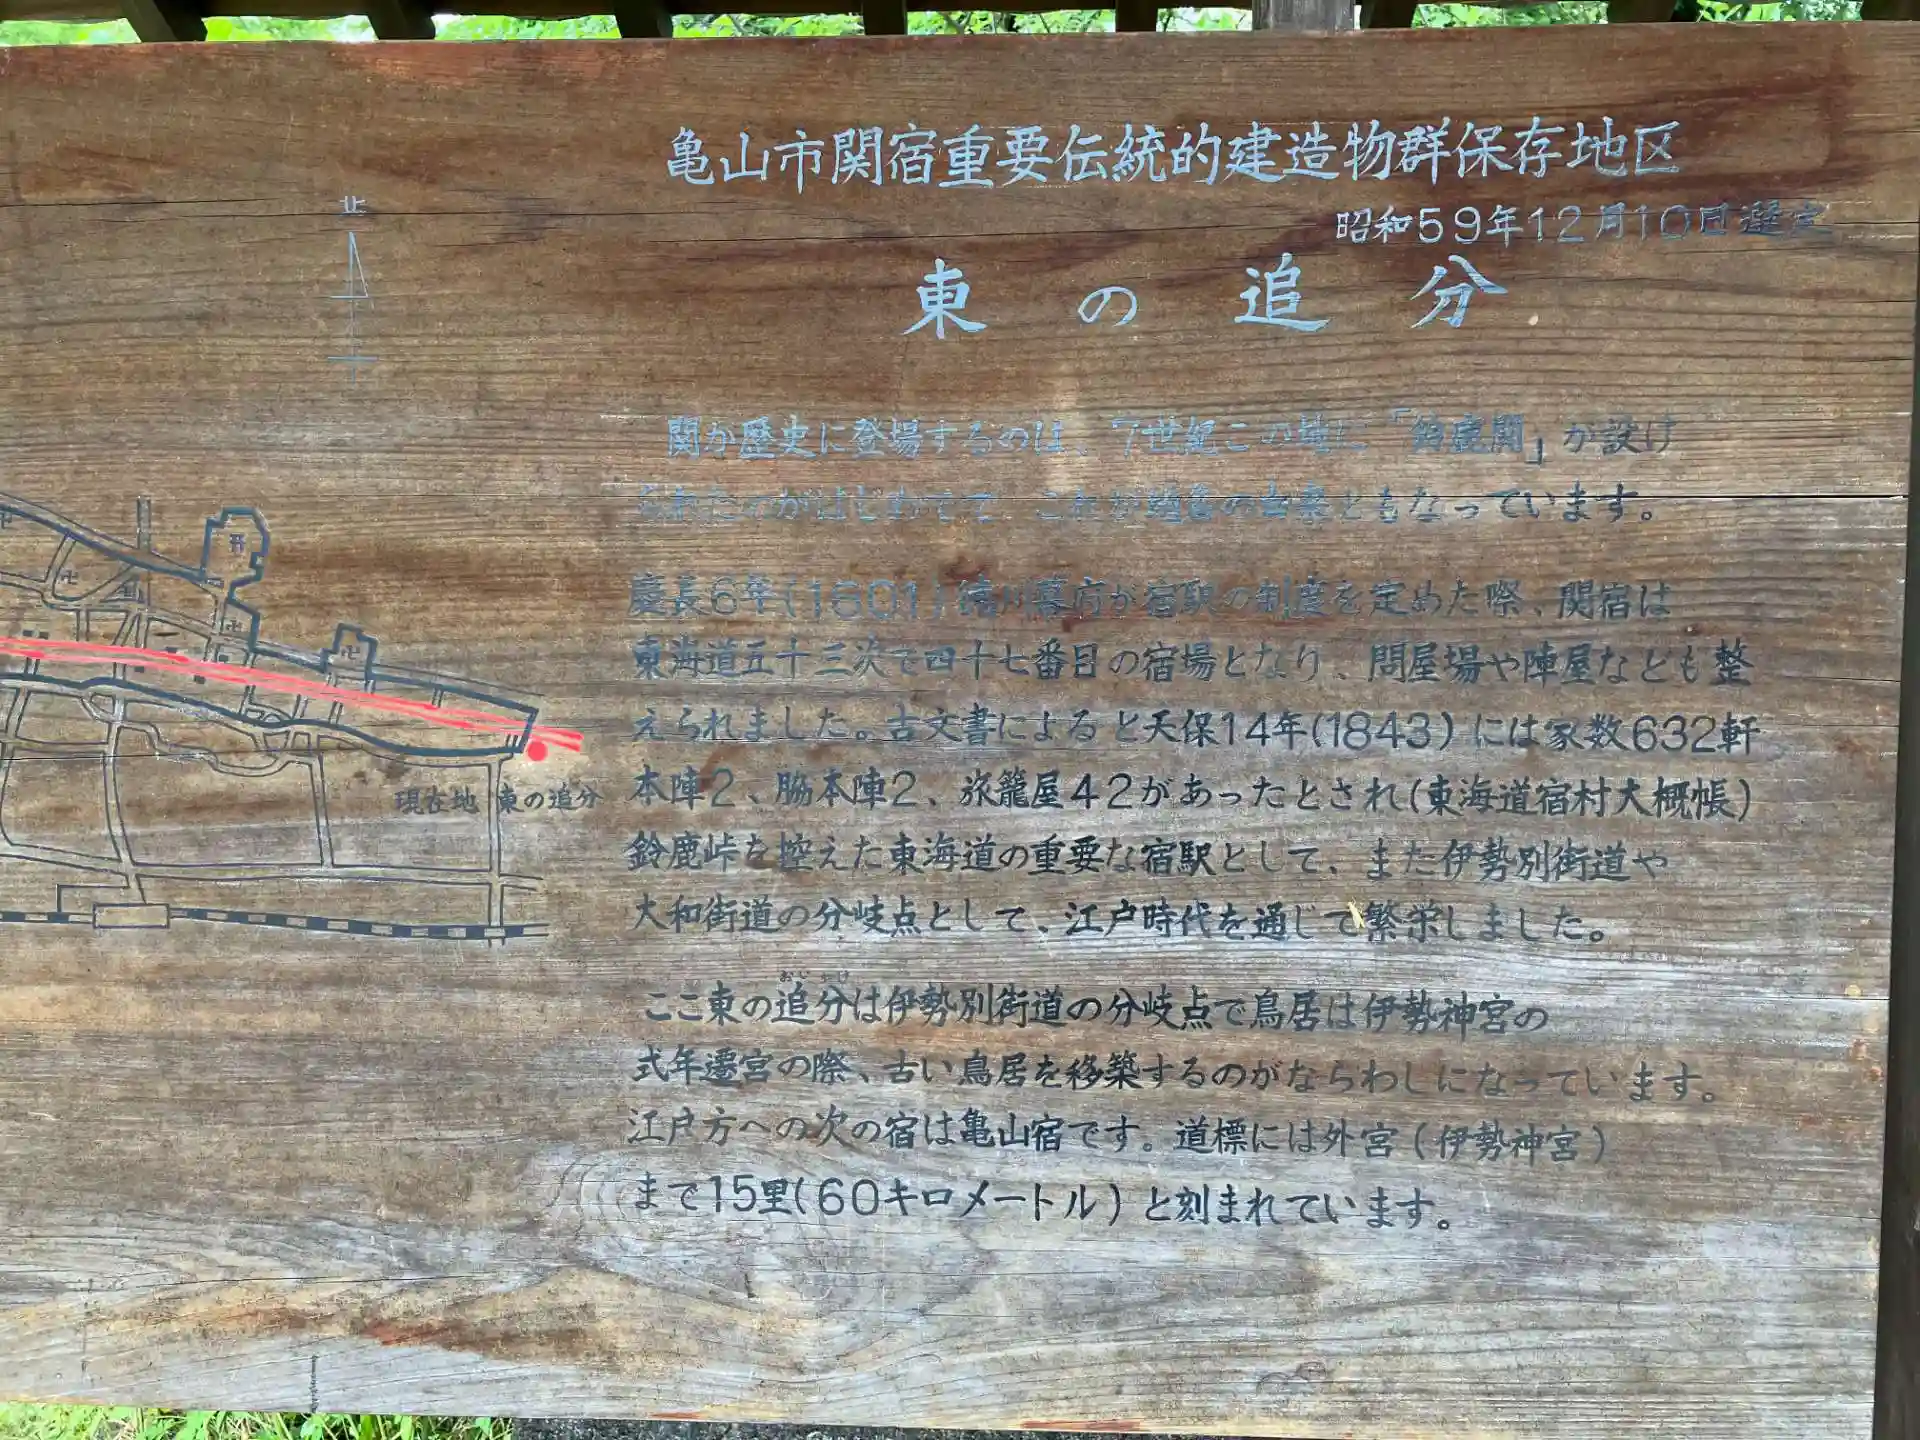 亀山市関宿重要伝統的建造物群保存地区
昭和59年12月10日選定
東の追分
北
関が歴史に登場するのは、7世紀この地に「鈴鹿関」が設け
られたのがはじめてで これが地名の由来ともなっています。
慶長6年(1601)徳川幕府が宿駅の制度を定めた際、関宿は
東海道五十三次で四十七番目の宿場となり、問屋場や陣屋なども整
えられました。古文書によると天保14年(1843)には家数632軒
本陣2、脇本陣2、旅籠屋42があったとされ(東海道宿村大概帳)
鈴鹿峠を控えた東海道の重要な宿駅として、また伊勢別街道や
大和街道の分岐点として、江戸時代を通じて繁栄しました。
おいわけ
ここ東の追分は伊勢別街道の分岐点で鳥居は伊勢神宮の
式年遷宮の際、古い鳥居を移築するのがならわしになっています。
江戸方への次の宿は亀山宿です。道標には外宮(伊勢神宮)
まで15里(60キロメートル)と刻まれています。
現在地 東の追分